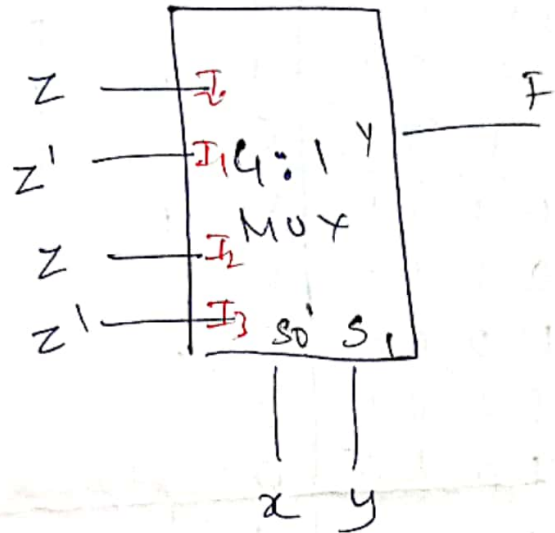 Z I₀ F
Z' I₁ 4:1 Y
MUX
Z I₂
Z' I₃ S0 S1
x y